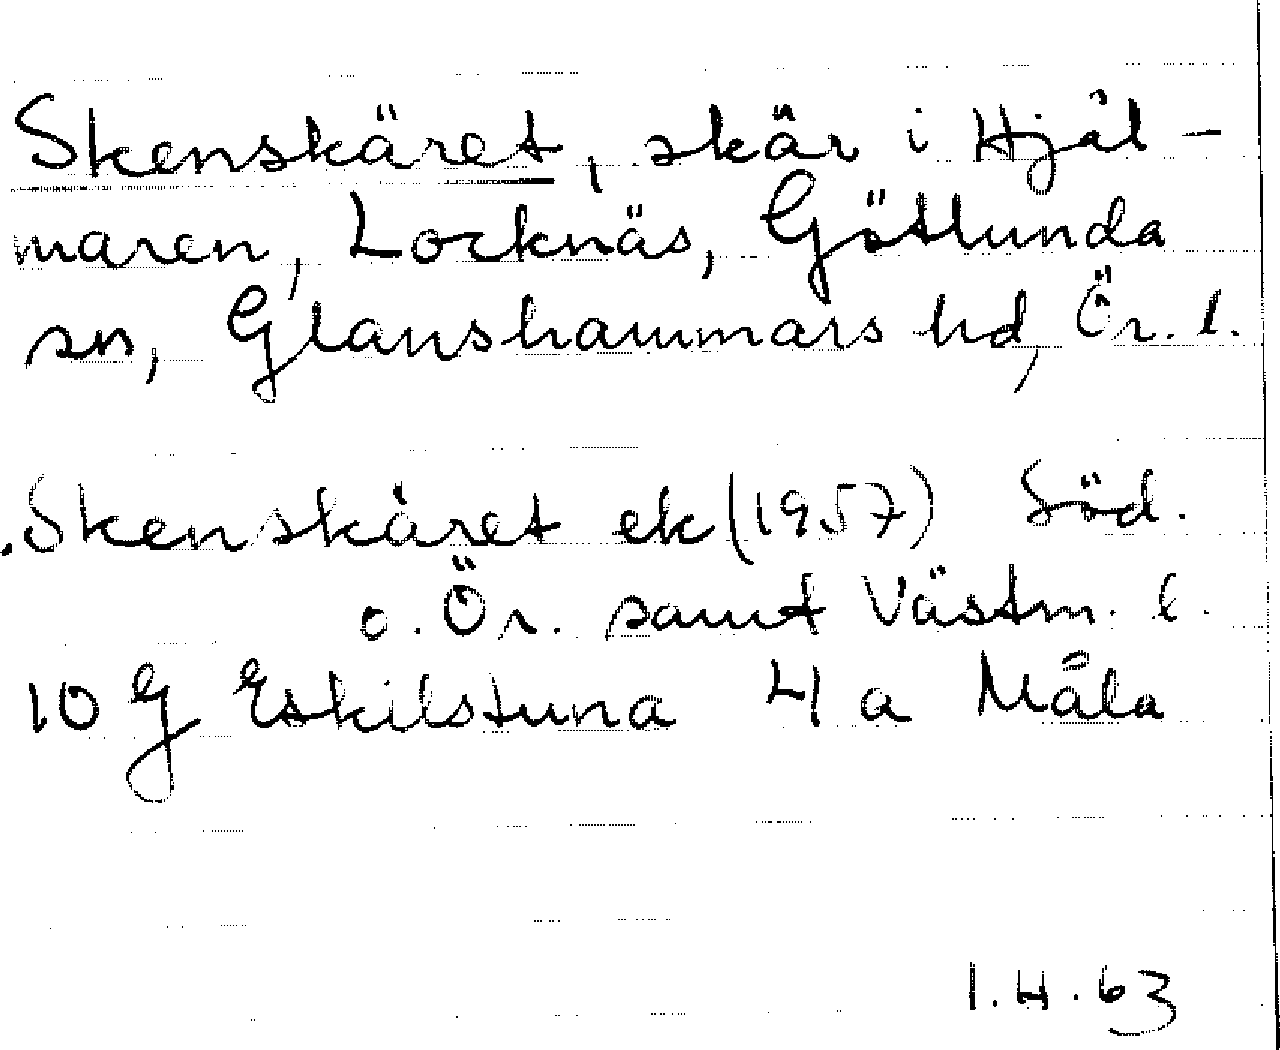 Skenskäret, skär i Hjäl-
maren, Locknäs, Götlunda
sn, Glanshammars hd, Ör. l.
Skenskäret ek (1957) Söd.
o. Ör. samt Västm. l.
10 G Eskilstuna 4 a Måla
I.H.63